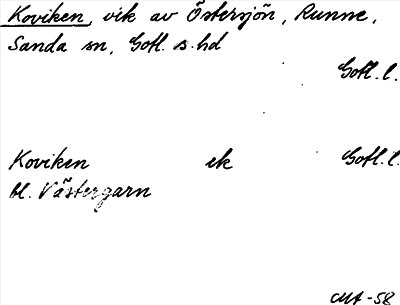 Koviken, vik av Östersjön, Runne,
Sanda sn, Gotl. s. hd
Gotl. l.
Koviken ek Gotl. l.
bl. Västergarn
-58